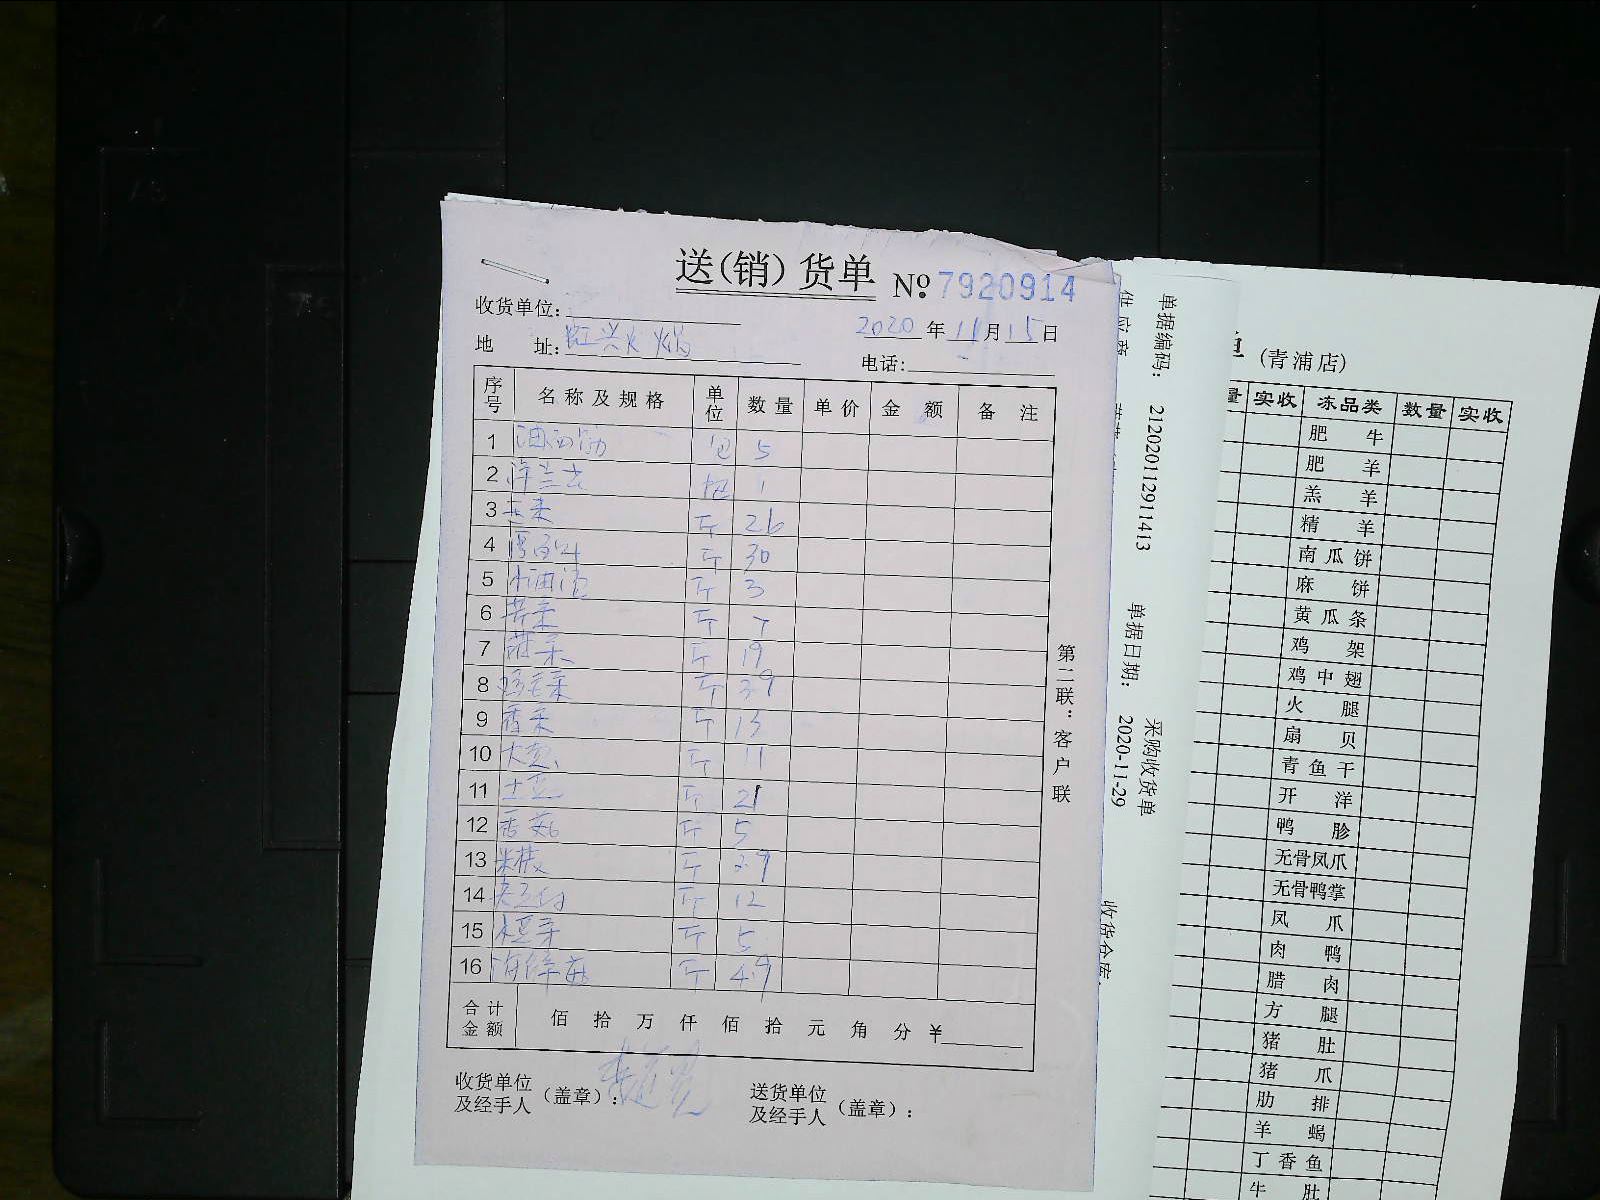 送(销)货单 № 7920914
收货单位:
2020 年 11 月 15 日
地 址:
电话:
序号 名称及规格 单位 数量 单价 金额 备注
1 油面筋 包 5
2 包 1
3 斤 26
4 斤 30
5 斤 3
6 斤 7
7 斤 19
8 鸡毛菜 斤 39
9 香菜 斤 13
10 大葱 斤 11
11 土豆 斤 21
12 香菇 斤 5
13 米椒 斤 29
14 斤 12
15 斤 5
16 斤 49
合计金额 佰 拾 万 仟 佰 拾 元 角 分 ¥
收货单位及经手人(盖章):
送货单位及经手人(盖章):
第二联:客户联
供应商
单据编码: 2120201129911413
单据日期: 2020-11-29
采购收货单
收货仓库:
单 (青浦店)
量 实收 冻品类 数量 实收
肥牛
肥羊
羔羊
精羊
南瓜饼
麻饼
黄瓜条
鸡架
鸡中翅
火腿
扇贝
青鱼干
开洋
鸭胗
无骨凤爪
无骨鸭掌
凤爪
肉鸭
腊肉
方腿
猪肚
猪爪
肋排
羊蝎
丁香鱼
牛肚